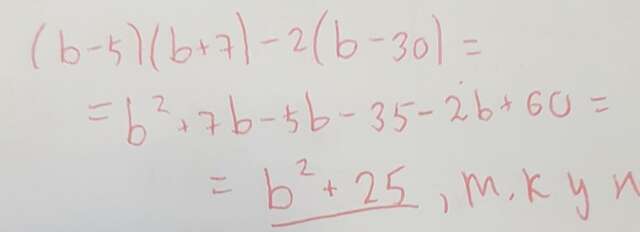 (b-5)(b+7)-2(b-30)=
=b²+7b-5b-35-2b+60=
=b²+25, m.к у н